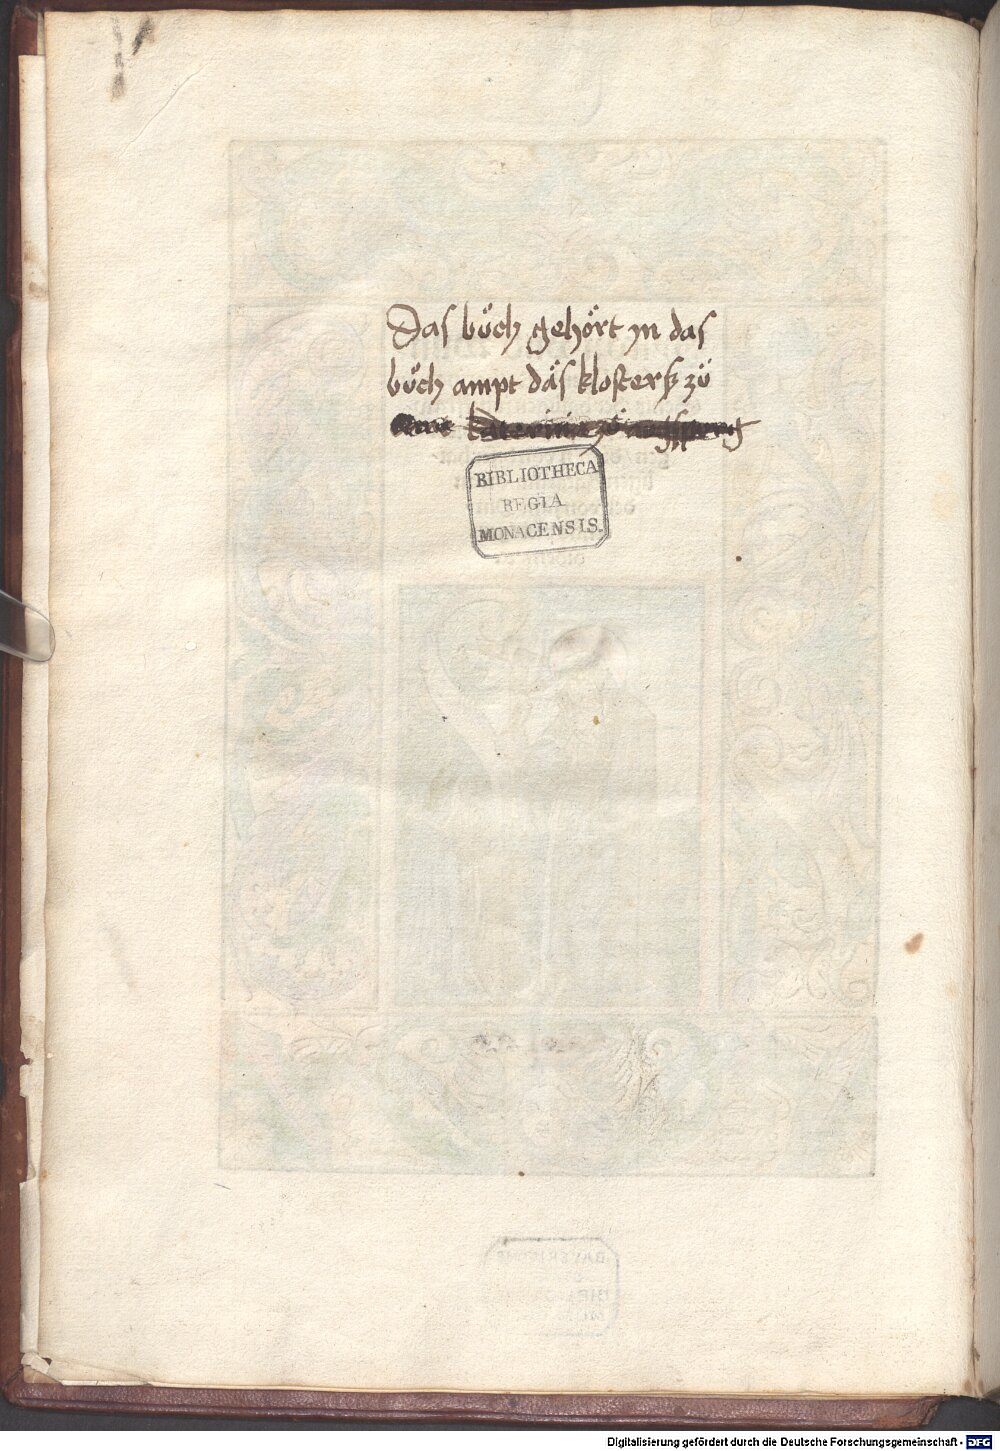 Das bůch gehört jn das
bůch ampt däs klosterß zů
katerine zů augspurg
BIBLIOTHECA
REGIA
MONACENSIS.
Digitalisierung gefördert durch die Deutsche Forschungsgemeinschaft - DFG